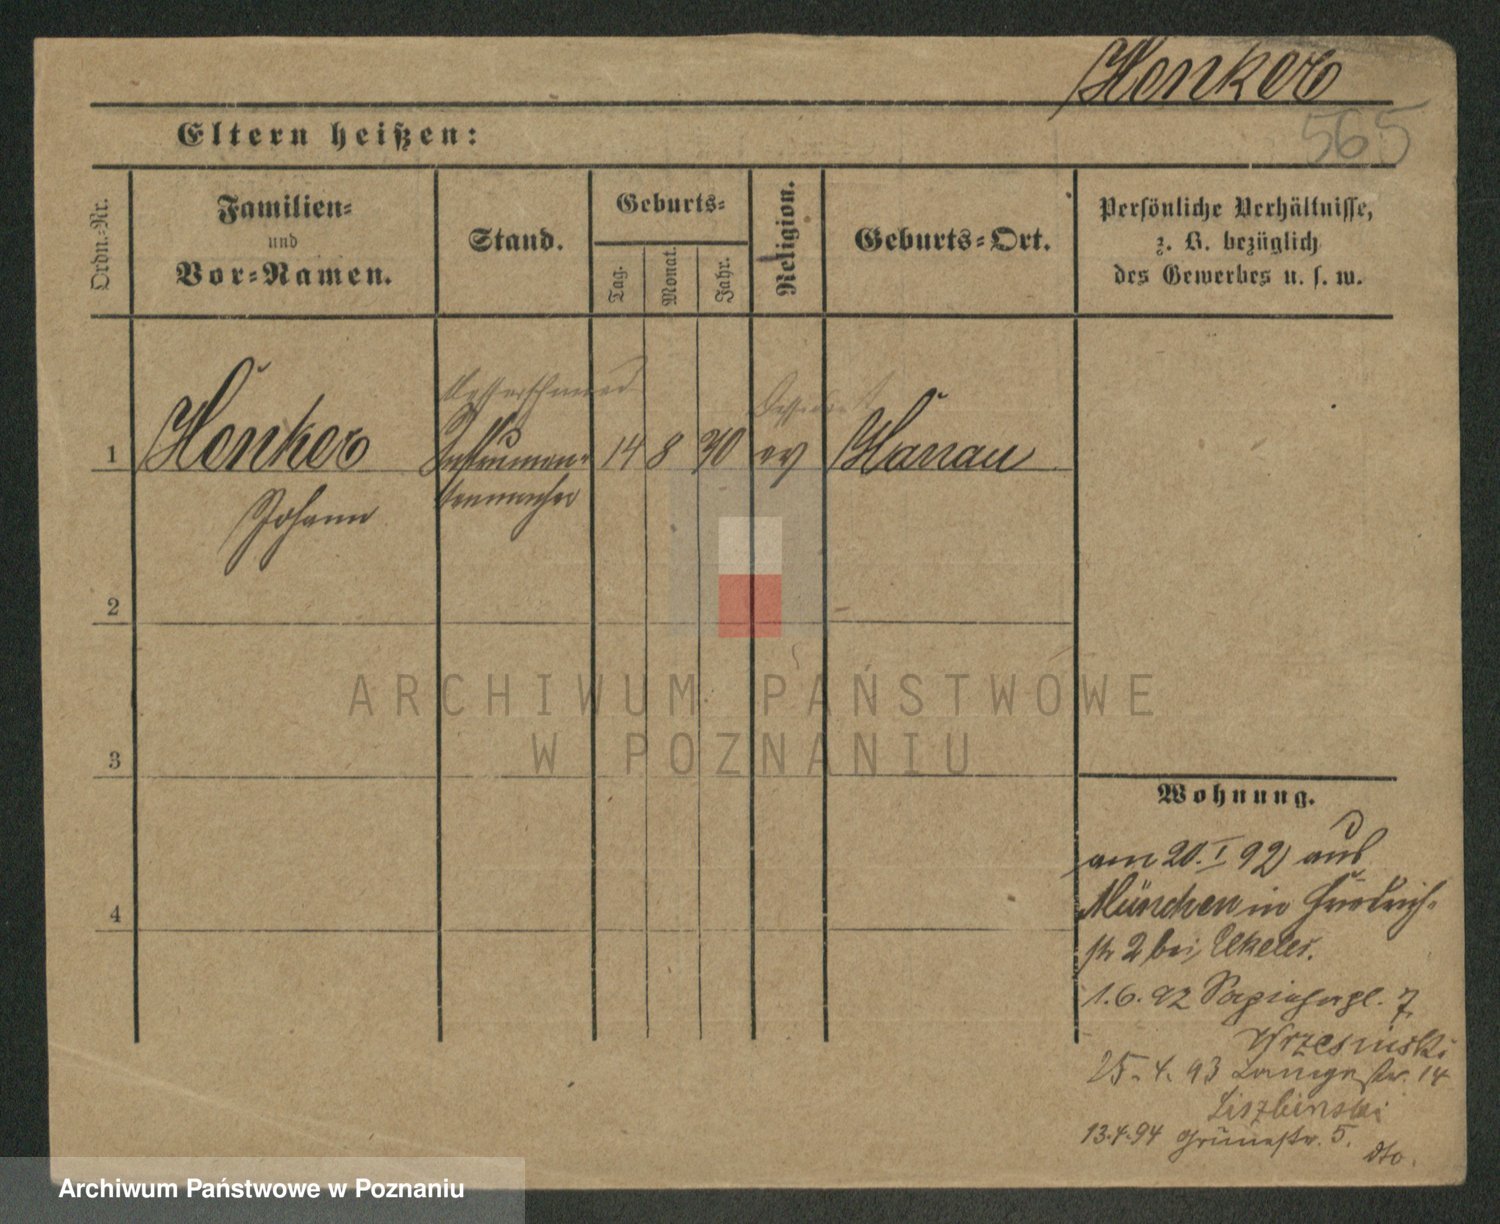 Henker
565
Eltern heißen:
Ordn.-Nr.
Familien-
und
Vor-Namen.
Stand.
Geburts-
Tag.
Monat.
Jahr.
Religion.
Geburts-Ort.
Persönliche Verhältnisse,
z. B. bezüglich
des Gewerbes u. s. w.
Messerschmied
1 Henker Instrumen- 14 8 70 ev Hanau
Johann tenmacher
2
3
4
ARCHIWUM PAŃSTWOWE
W POZNANIU
Wohnung.
am 20. I 92 aus
München in Friedrich-
str 2 bei Ekeles.
1.6.92 Sapiehapl. 7
Wrzesinski
25.4.93 Langestr. 14
Liszbinski
13.4.94 Grünestr. 5.
dto.
Archiwum Państwowe w Poznaniu